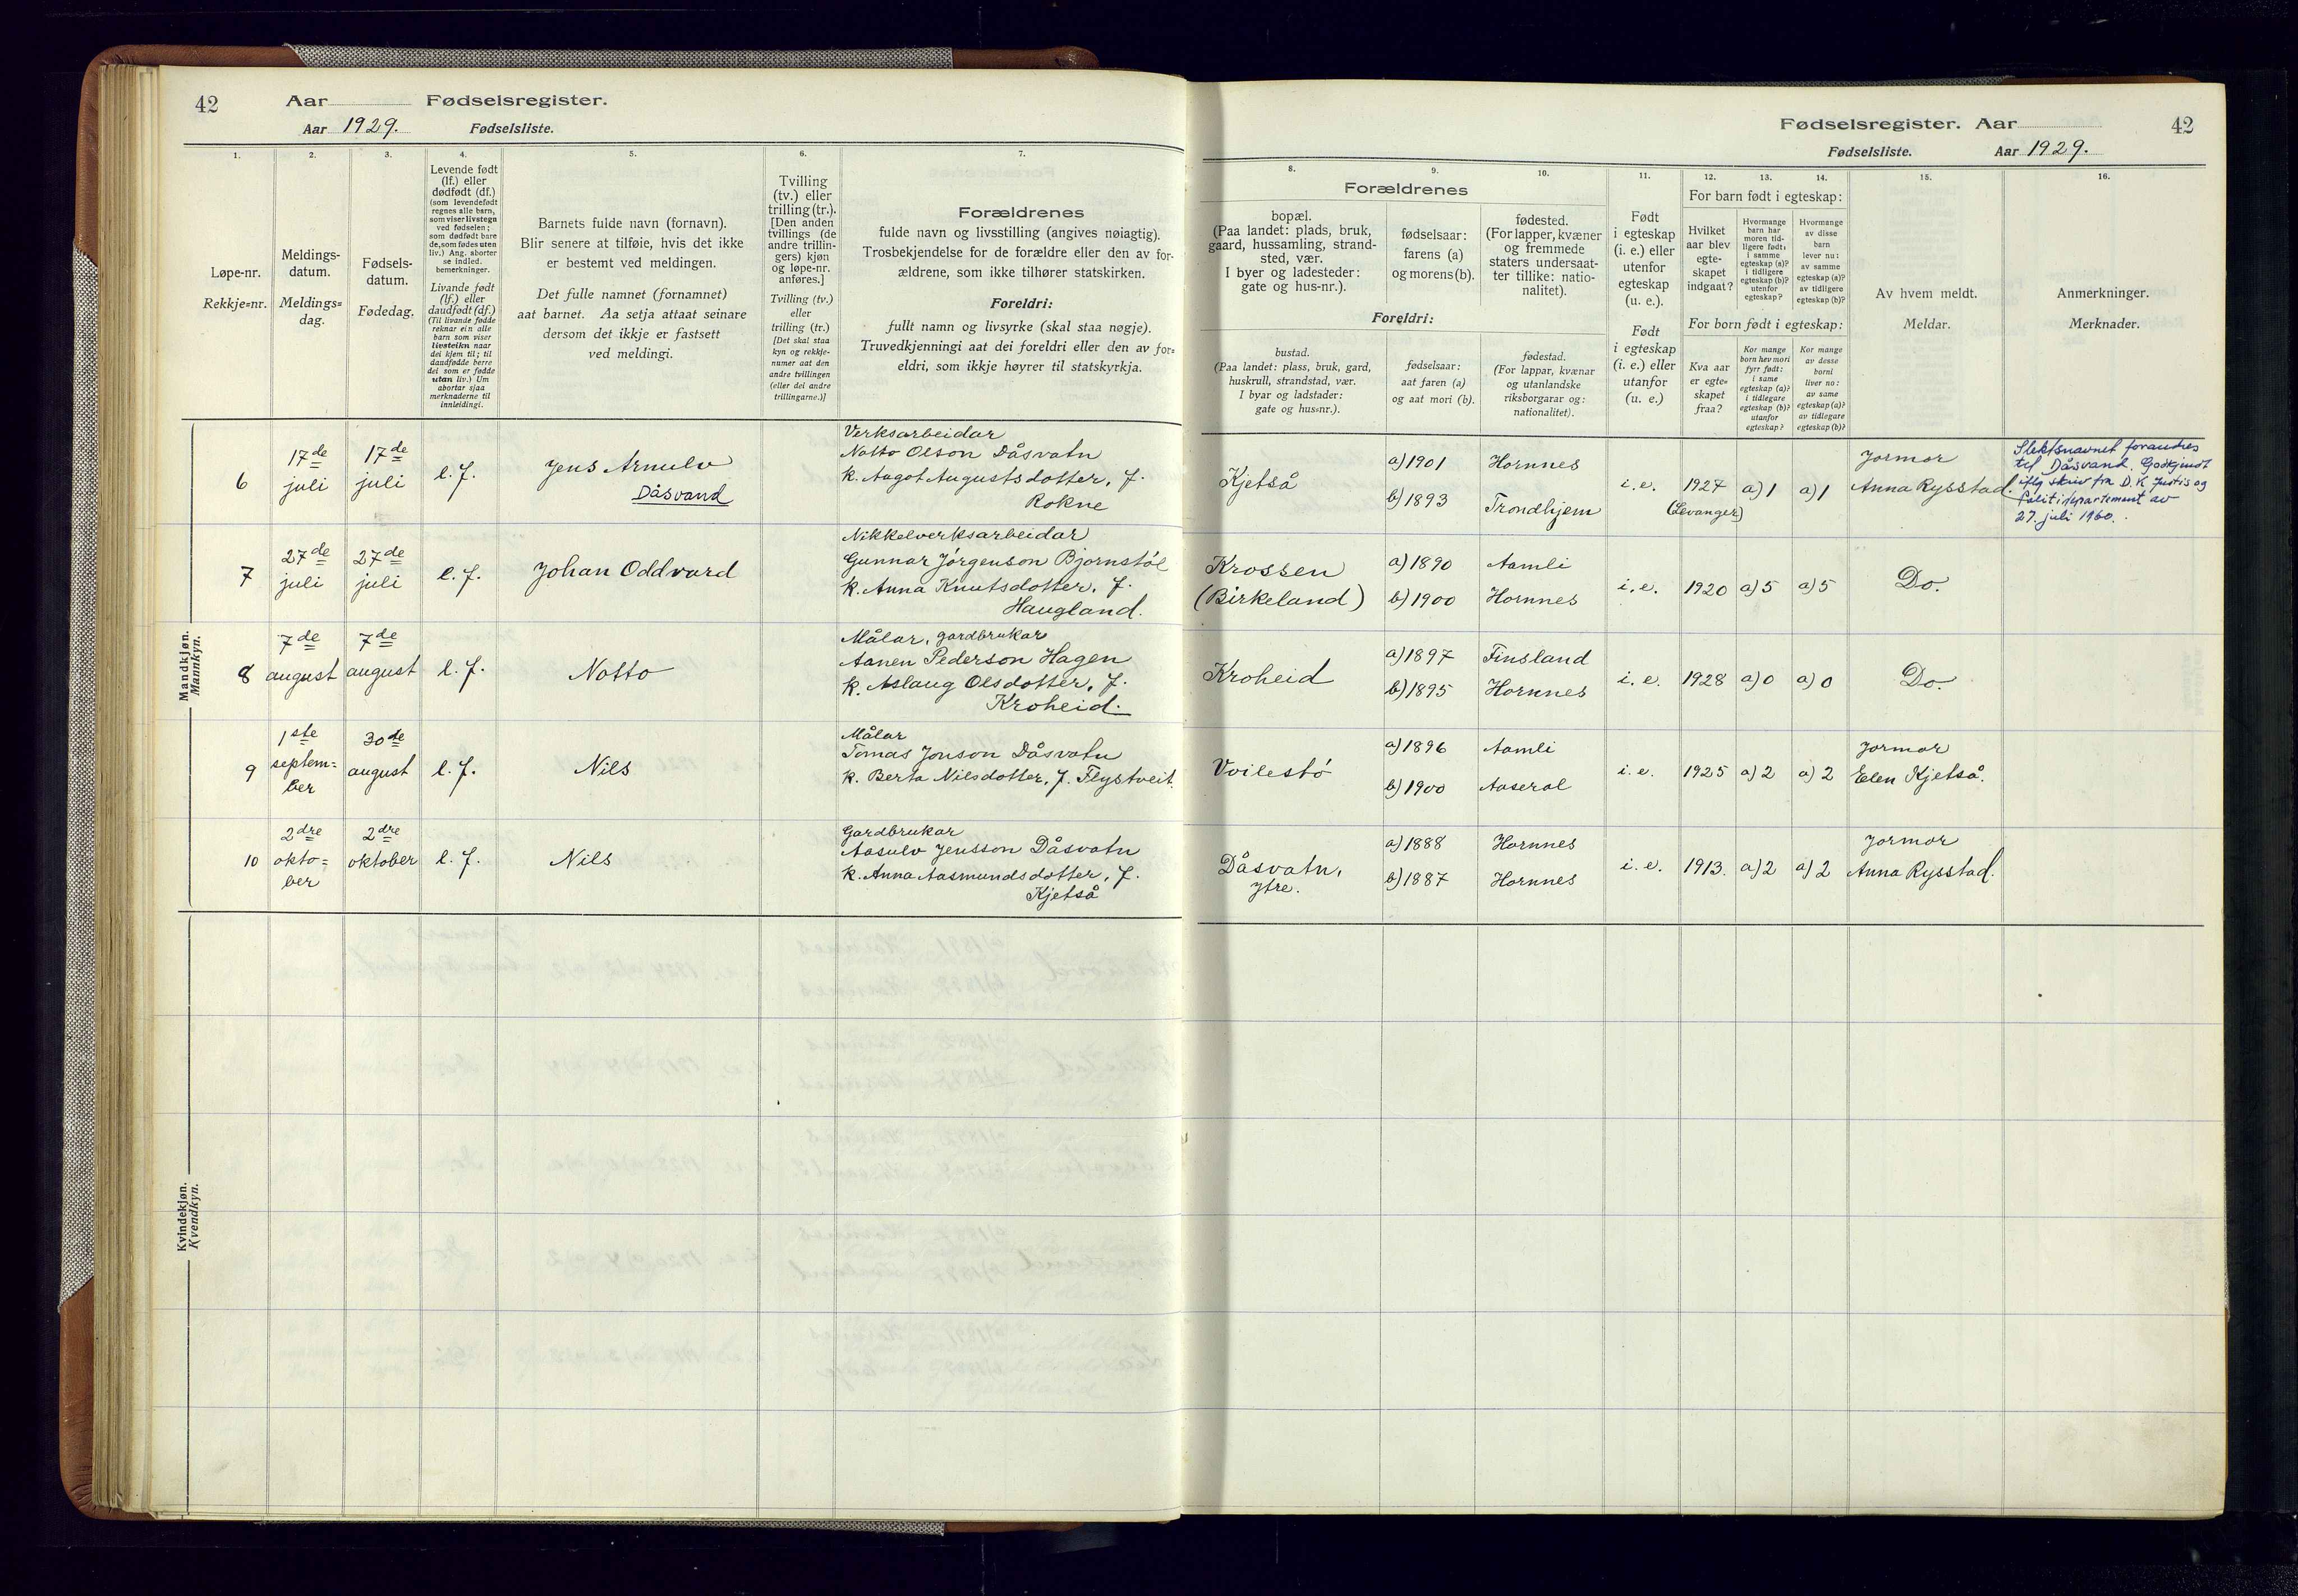 42
Aar
Fødselsregister.
Aar 1929.
Fødselsliste.
1.
2.
3.
4.
5.
6.
7.
Løpe-nr.
Rekkje=nr.
Meldings-
datum.
Meldings=
dag.
Fødsels-
datum.
Fødedag.
Levende født
(lf.) eller
dødfødt (df.)
(som levendefødt
regnes alle barn,
som viser livstegn
ved fødselen;
som dødfødt bare
de, som fødes uten
liv.) Ang. aborter
se indled.
bemerkninger.
Livande født
(lf.) eller
daudfødt (df.)
(Til livande fødde
reknar ein alle
barn som viser
livsteikn naar
dei kjem til; til
daudfødde berre
dei som er fødde
utan liv.) Um
abortar sjaa
merknaderne til
innleidingi.
Barnets fulde navn (fornavn).
Blir senere at tilføie, hvis det ikke
er bestemt ved meldingen.
Det fulle namnet (fornamnet)
aat barnet. Aa setja attaat seinare
dersom det ikkje er fastsett
ved meldingi.
Tvilling
(tv.) eller
trilling (tr.).
[Den anden
tvillings (de
andre trillin-
gers) kjøn
og løpe-nr.
anføres.]
Tvilling (tv.)
eller
trilling (tr.)
[Det skal staa
kyn og rekkje-
numer aat den
andre tvillingen
(eller dei andre
trillingarne.)]
Forældrenes
fulde navn og livsstilling (angives nøiagtig).
Trosbekjendelse for de forældre eller den av for-
ældrene, som ikke tilhører statskirken.
Foreldri:
fullt namn og livsyrke (skal staa nøgje).
Truvedkjenningi aat dei foreldri eller den av for=
eldri, som ikkje høyrer til statskyrkja.
Mandkjøn.
Mannkyn.
6
17de
juli
17de
juli
l. f.
Jens Arnulv
Dåsvand
Verksarbeidar
Notto Olson Dåsvatn
k. Aagot Augustsdotter, f.
Rokne
7
27de
juli
27de
juli
l. f.
Johan Oddvard
Nikkelverksarbeidar
Gunnar Jørgenson Bjornstøl
k. Anna Knutsdotter, f.
Haugland.
8
7de
august
7de
august
l. f.
Notto
Målar, gardbrukar
Aanen Pederson Hagen
k. Aslaug Olsdotter, f.
Kroheid.
9
1ste
septem=
ber
30de
august
l. f.
Nils
Målar
Tomas Jonson Dåsvatn
k. Berta Nilsdotter, f. Flystveit.
10
2dre
okto=
ber
2dre
oktober
l. f.
Nils
Gardbrukar
Aasulv Jensson Dåsvatn
k. Anna Aasmundsdotter, f.
Kjetså
Kvindekjøn.
Kvendkyn.
Fødselsregister. Aar
42
Fødselsliste.
Aar 1929.
8.
9.
10.
11.
12.
13.
14.
15.
16.
Forældrenes
bopæl.
(Paa landet: plads, bruk,
gaard, hussamling, strand-
sted, vær.
I byer og ladesteder:
gate og hus-nr.).
fødselsaar:
farens (a)
og morens (b).
fødested.
(For lapper, kvæner
og fremmede
staters undersaat-
ter tillike: natio-
nalitet).
Foreldri:
bustad.
(Paa landet: plass, bruk, gard,
huskrull, strandstad, vær.
I byar og ladstader:
gate og hus=nr.).
fødselsaar:
aat faren (a)
og aat mori (b).
fødestad.
(For lappar, kvænar
og utanlandske
riksborgarar og:
nationalitet).
Født
i egteskap
(i. e.) eller
utenfor
egteskap
(u. e.).
Født
i egteskap
(i. e.) eller
utanfor
(u. e.)
For barn født i egteskap:
Hvilket
aar blev
egte-
skapet
indgaat?
Hvormange
barn har
moren tid-
ligere født:
i samme
egteskap (a)?
i tidligere
egteskap (b)?
utenfor
egteskap?
Hvormange
av disse
barn
lever nu:
av samme
egteskap (a)?
av tidligere
egteskap (b)?
For born født i egteskap:
Kva aar
er egte=
skapet
fraa?
Kor mange
born hev mori
fyrr født:
i same
egteskap (a)?
i tidlegare
egteskap (b)?
utanfor
egteskap?
Kor mange
av desse
borni
liver no:
av same
egteskap (a)?
av tidlegare
egteskap (b)?
Av hvem meldt.
Meldar.
Anmerkninger.
Merknader.
Kjetså
a) 1901
b) 1893
Hornnes
Trondhjem
i. e.
1927
(Levanger)
a) 1
a) 1
Jormor
Anna Rysstad.
Slektsnavnet forandres
til Dåsvand. Godkjendt
iflg skriv fra D. K. Justis og
Politidepartement av
27. juli 1960.
Krossen
(Birkeland)
a) 1890
b) 1900
Aamli
Hornnes
i. e.
1920
a) 5
a) 5
Do.
Kroheid
a) 1897
b) 1895
Finsland
Hornnes
i. e.
1928
a) 0
a) 0
Do.
Voilestø
a) 1896
b) 1900
Aamli
Aaseral
i. e.
1925
a) 2
a) 2
Jormor
Elen Kjetså.
Dåsvatn,
ytre.
a) 1888
b) 1887
Hornnes
Hornnes
i. e.
1913.
a) 2
a) 2
Jormor
Anna Rysstad.